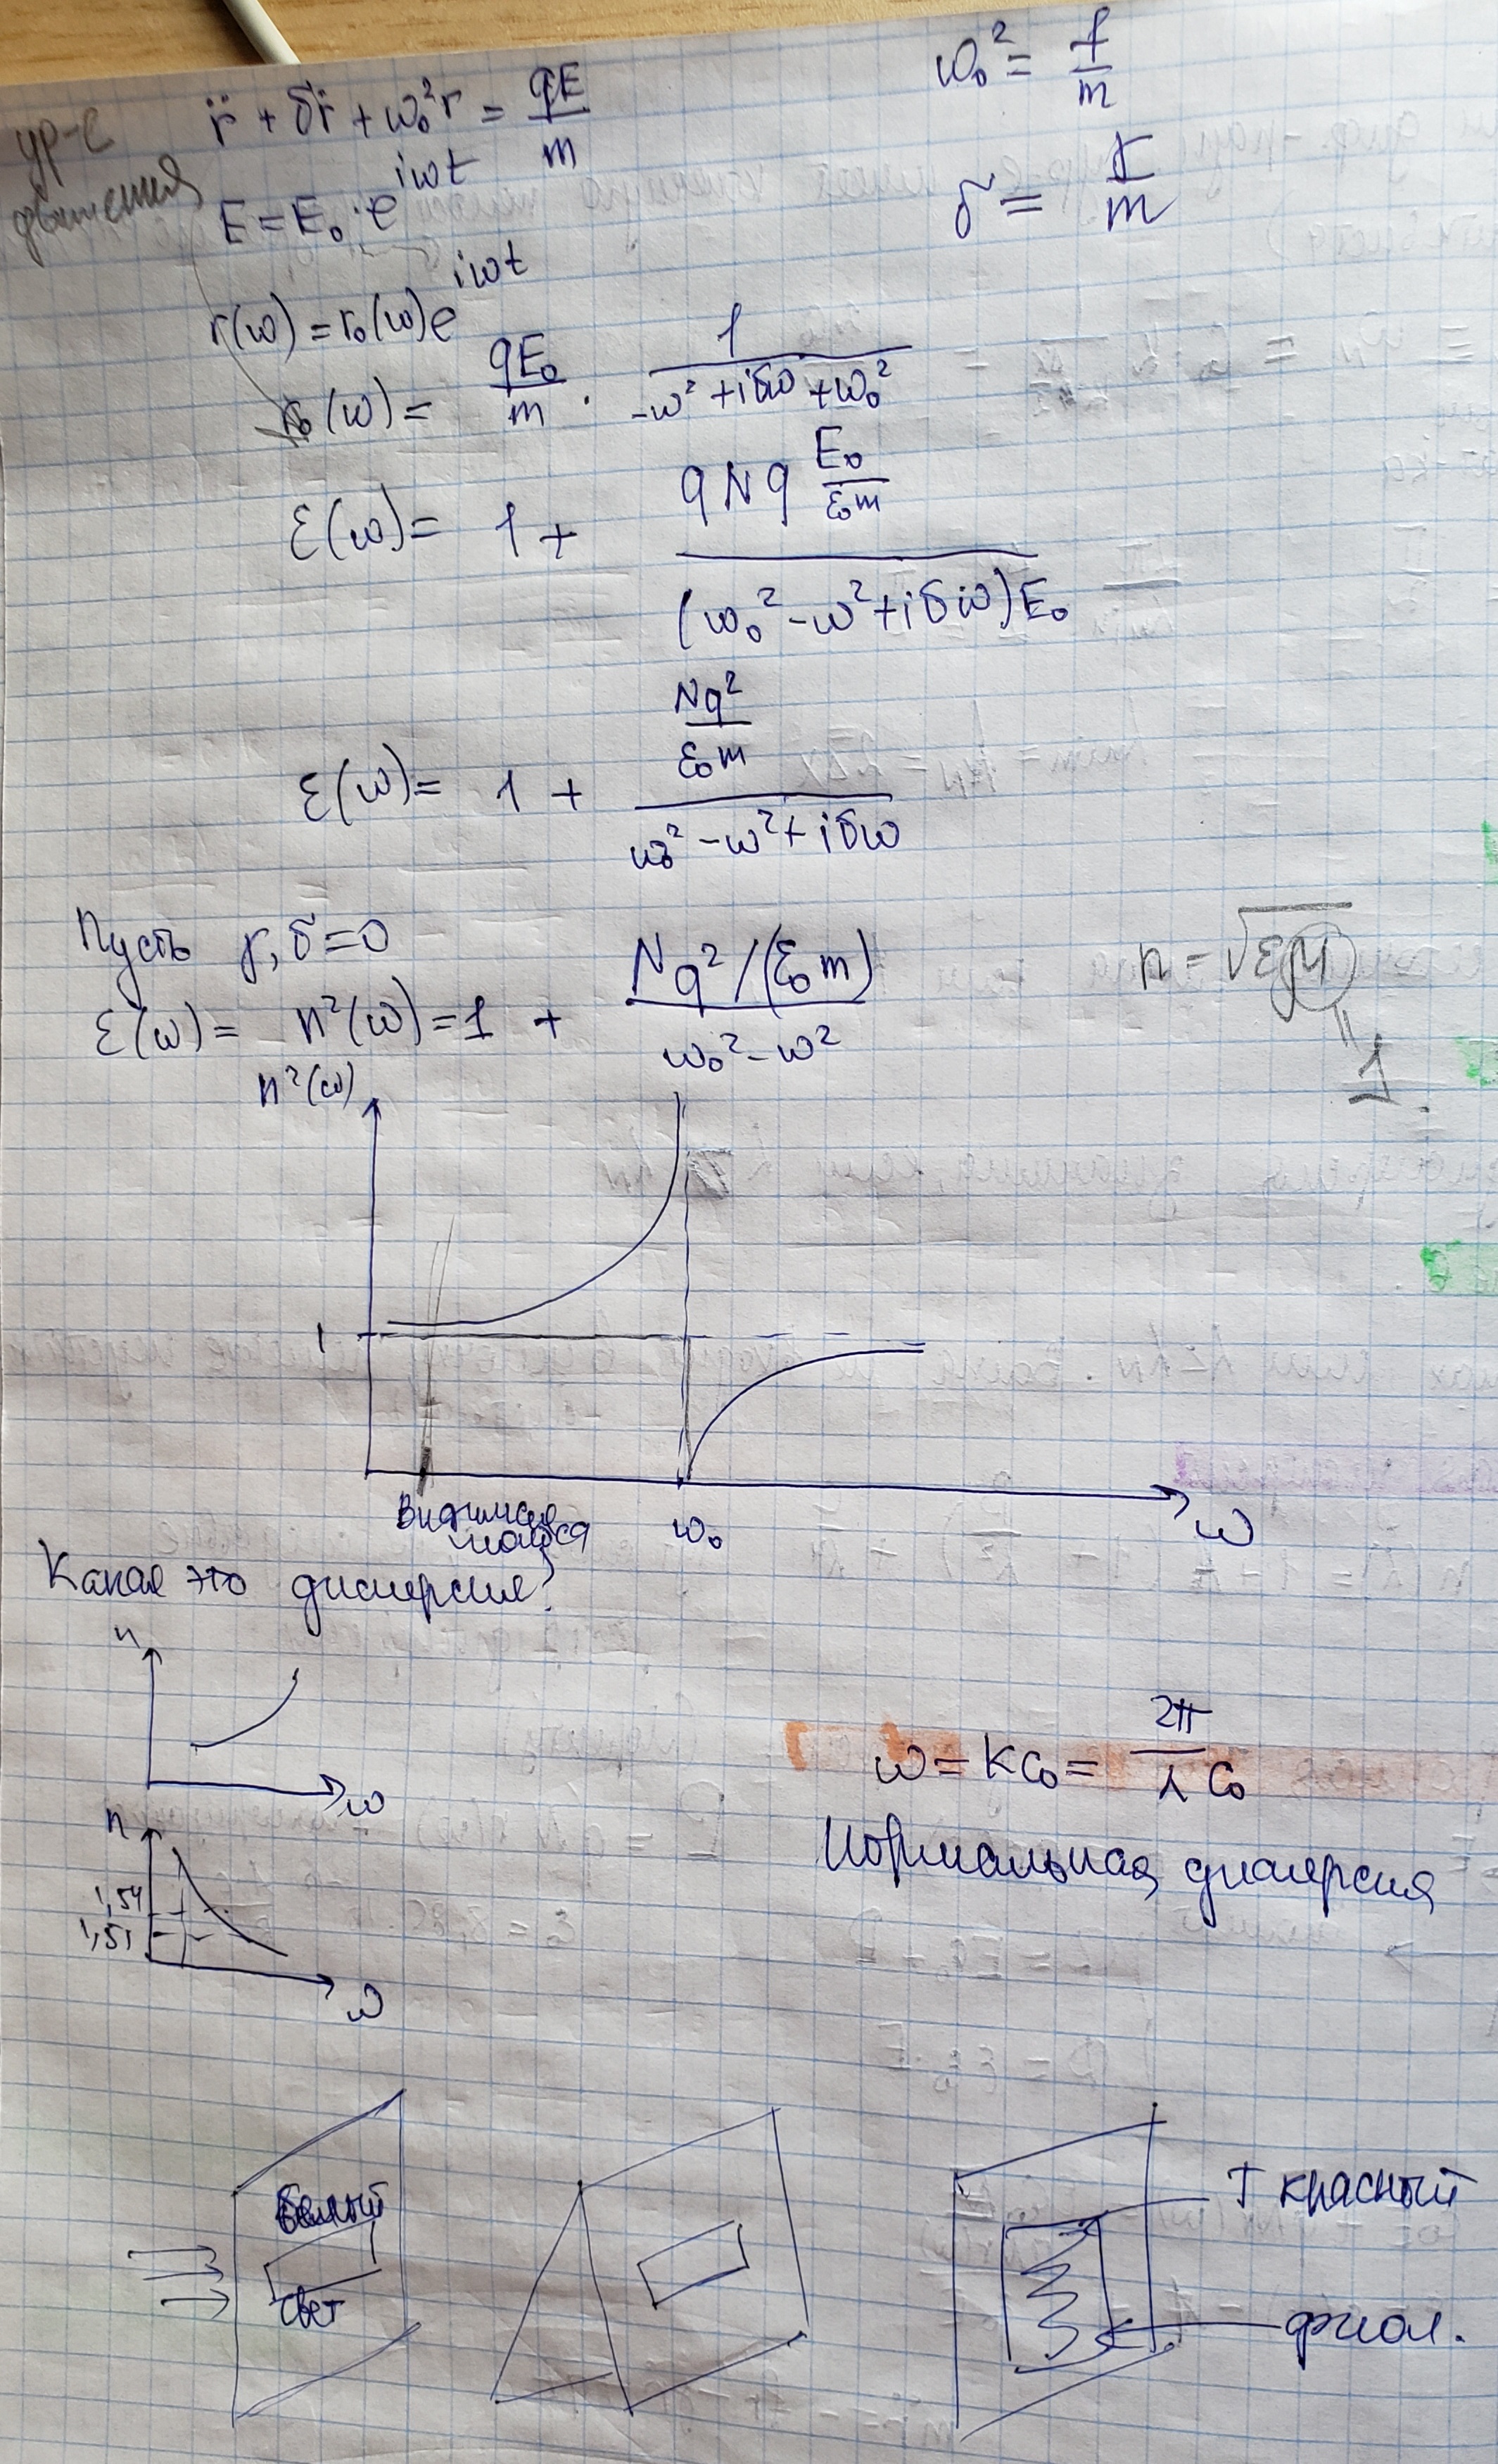 ур-е движения
r̈ + δṙ + ω₀²r = qE/m
ω₀² = f/m
E = E₀ · e^{iωt}
δ = r/m
r(ω) = r₀(ω)e^{iωt}
r₀(ω) = qE₀/m · 1/(-ω² + iδω + ω₀²)
ε(ω) = 1 + (qNq E₀/(ε₀m))/((ω₀² - ω² + iδω)E₀)
ε(ω) = 1 + (Nq²/(ε₀m))/(ω₀² - ω² + iδω)
Пусть γ, δ = 0
n = √(εμ)
ε(ω) = n²(ω) = 1 + (Nq²/(ε₀m))/(ω₀² - ω²)
" 1
n²(ω)
1
Видимая полоса
ω₀
ω
Какая это дисперсия?
n
ω
ω = kc₀ = 2π/λ c₀
n
Нормальная дисперсия
1,54
1,51
ω
Белый
свет
T красный
фиол.